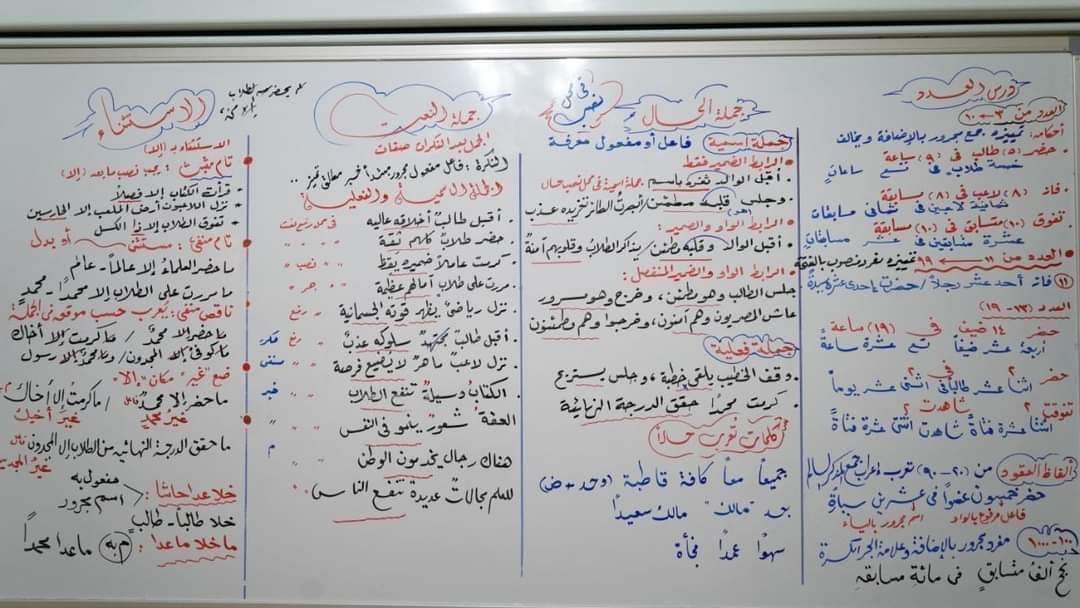 درس العدد
العدد من ٣ ← ١٠
أحكامه: تمييزه جمع مجرور بالإضافة ويخالف
حضر (٥) طالب في (٩) ساعة
خمسة طلاب في تسع ساعات
فاز (٨) لاعب في (٨) مسابقة
ثمانية لاعبين في ثماني مسابقات
تفوق (١٠) متسابق في (١٠) مسابقة
عشرة متسابقين في عشر مسابقات
العدد من ١١ ← ١٩ تمييزه مفرد منصوب بالفتحة
(١١) فاز أحد عشر رجلاً / حضرت إحدى عشرة سيدة
العدد (١٣-١٩)
حضر ١٤ ضيف في (١٩) ساعة
أربعة عشر ضيفاً تسع عشرة ساعة
حضر ٢ في ٢
اثنا عشر طالبا في اثنى عشر يوماً
تفوقت ٢ شاهدت ٢
اثنتا عشرة فتاة شاهدت اثنتى عشرة فتاة
ألفاظ العقود من (٢٠-٩٠) تعرب إعراب جمع المذكر السالم
حضر خمسون عضواً في عشرين سيارة
فاعل مرفوع بالواو اسم مجرور بالياء
١٠٠-١٠٠٠ مفرد مجرور بالإضافة وعلامة الجر الكسرة
نجح ألف متسابق في مائة مسابقة
جملة الحال
في محل نصب
جملة اسمية فاعل أو مفعول معرفة
الرابط الضمير فقط
أقبل الوالد ثغره باسم جملة اسمية في محل نصب حال
وجلس قلبه مطمئن / أبصرت الطائر تغريده عذب
الرابط الواو والضمير: (هو)
أقبل الوالد وقلبه مطمئن / يذاكر الطلاب وقلوبهم آمنة
الرابط الواو والضمير المنفصل:
جلس الطالب وهو مطمئن، وخرج وهو مسرور
عاش المصريون وهم آمنون، وفرحوا وهم مطمئنون
جملة فعلية
وقف الخطيب يلقى خطبة، وجلس يستريح
كرمت محمدًا حقق الدرجة النهائية
كلمات تعرب حالاً
جميعًا معًا كافة قاطبة (وحد + ض)
بعد "مالك" مالك سعيدًا
سهوًا عمدًا فجأة
جملة النعت
الجمل بعد النكرات صفات
النكرة: فاعل مفعول مجرور مبتدأ خبر مطلق تمييز ..
الجملة الاسمية والفعلية
أقبل طالب أخلاقه عالية في محل رفع نعت
حضر طلاب كلهم ثقة " " " "
كرمت عاملاً ضميره يقظ " " نصب "
مررت على طلاب آمالهم عظيمة " " جر "
نزل رياضي يظهر قوته الجسمانية " " رفع
أقبل طالب مجتهد سلوكه عذب " " رفع
نزل لاعب ماهر لا يضيع فرصة " "
الكتاب وسيلة تنفع الطلاب " " خبر
العفة شعور ينمو في النفس " " "
هناك رجال يخدمون الوطن " " م
للعلم مجالات عديدة تنفع الناس
الاستثناء
الاستثناء بـ (إلا)
تام مثبت: يجب نصب ما بعد (إلا)
قرأت الكتاب إلا فصلاً
نزل اللاعبون أرض الملعب إلا الحارسين
تفوق الطلاب إلا ذا الكسل
تام منفي: مستثنى أو بدل
ما حضر العلماء إلا عالماً - عالم
ما مررت على الطلاب إلا محمدًا - محمدٍ
ناقص منفي: يعرب حسب موقعه في الجملة
ما حضر إلا محمدٌ / ما كرمت إلا أخاك
ما كوفئ إلا المجدون / وما محمد إلا رسول
ضع "غير" مكان "إلا"
ما حضر إلا محمدٌ / ما كرمت إلا أخاك
غير محمد غير أخيك
ما حقق الدرجة النهائية من الطلاب إلا المجدون
غير المجدين
خلا عدا حاشا: مفعول به
اسم مجرور
خلا طالباً - طالبٍ
ما خلا ما عدا: م به ما عدا محمداً